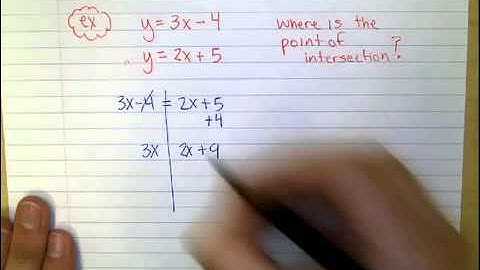 ex
y = 3x - 4
y = 2x + 5
where is the
point of
intersection?
3x - 4 = 2x + 5
+4
3x 2x + 9